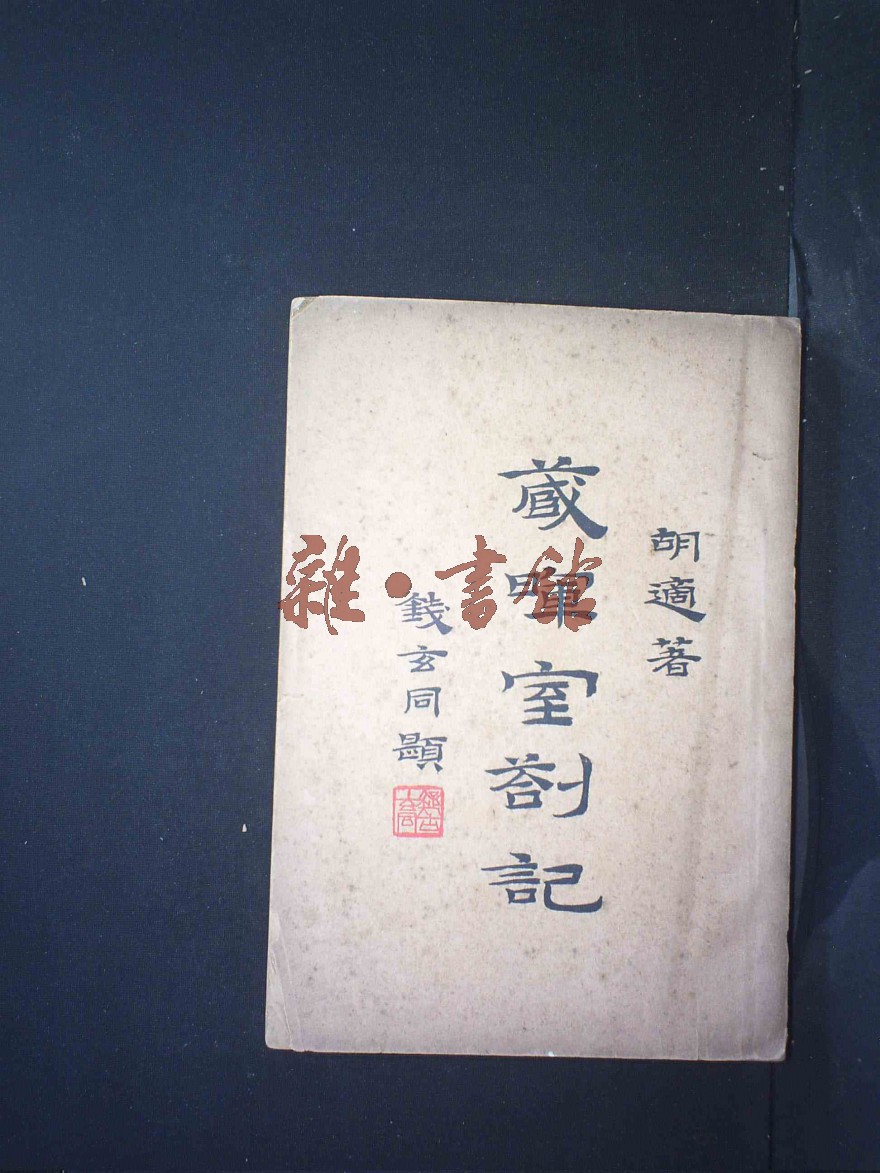 胡適著
藏暉室劄記
錢玄同題
雜·書館